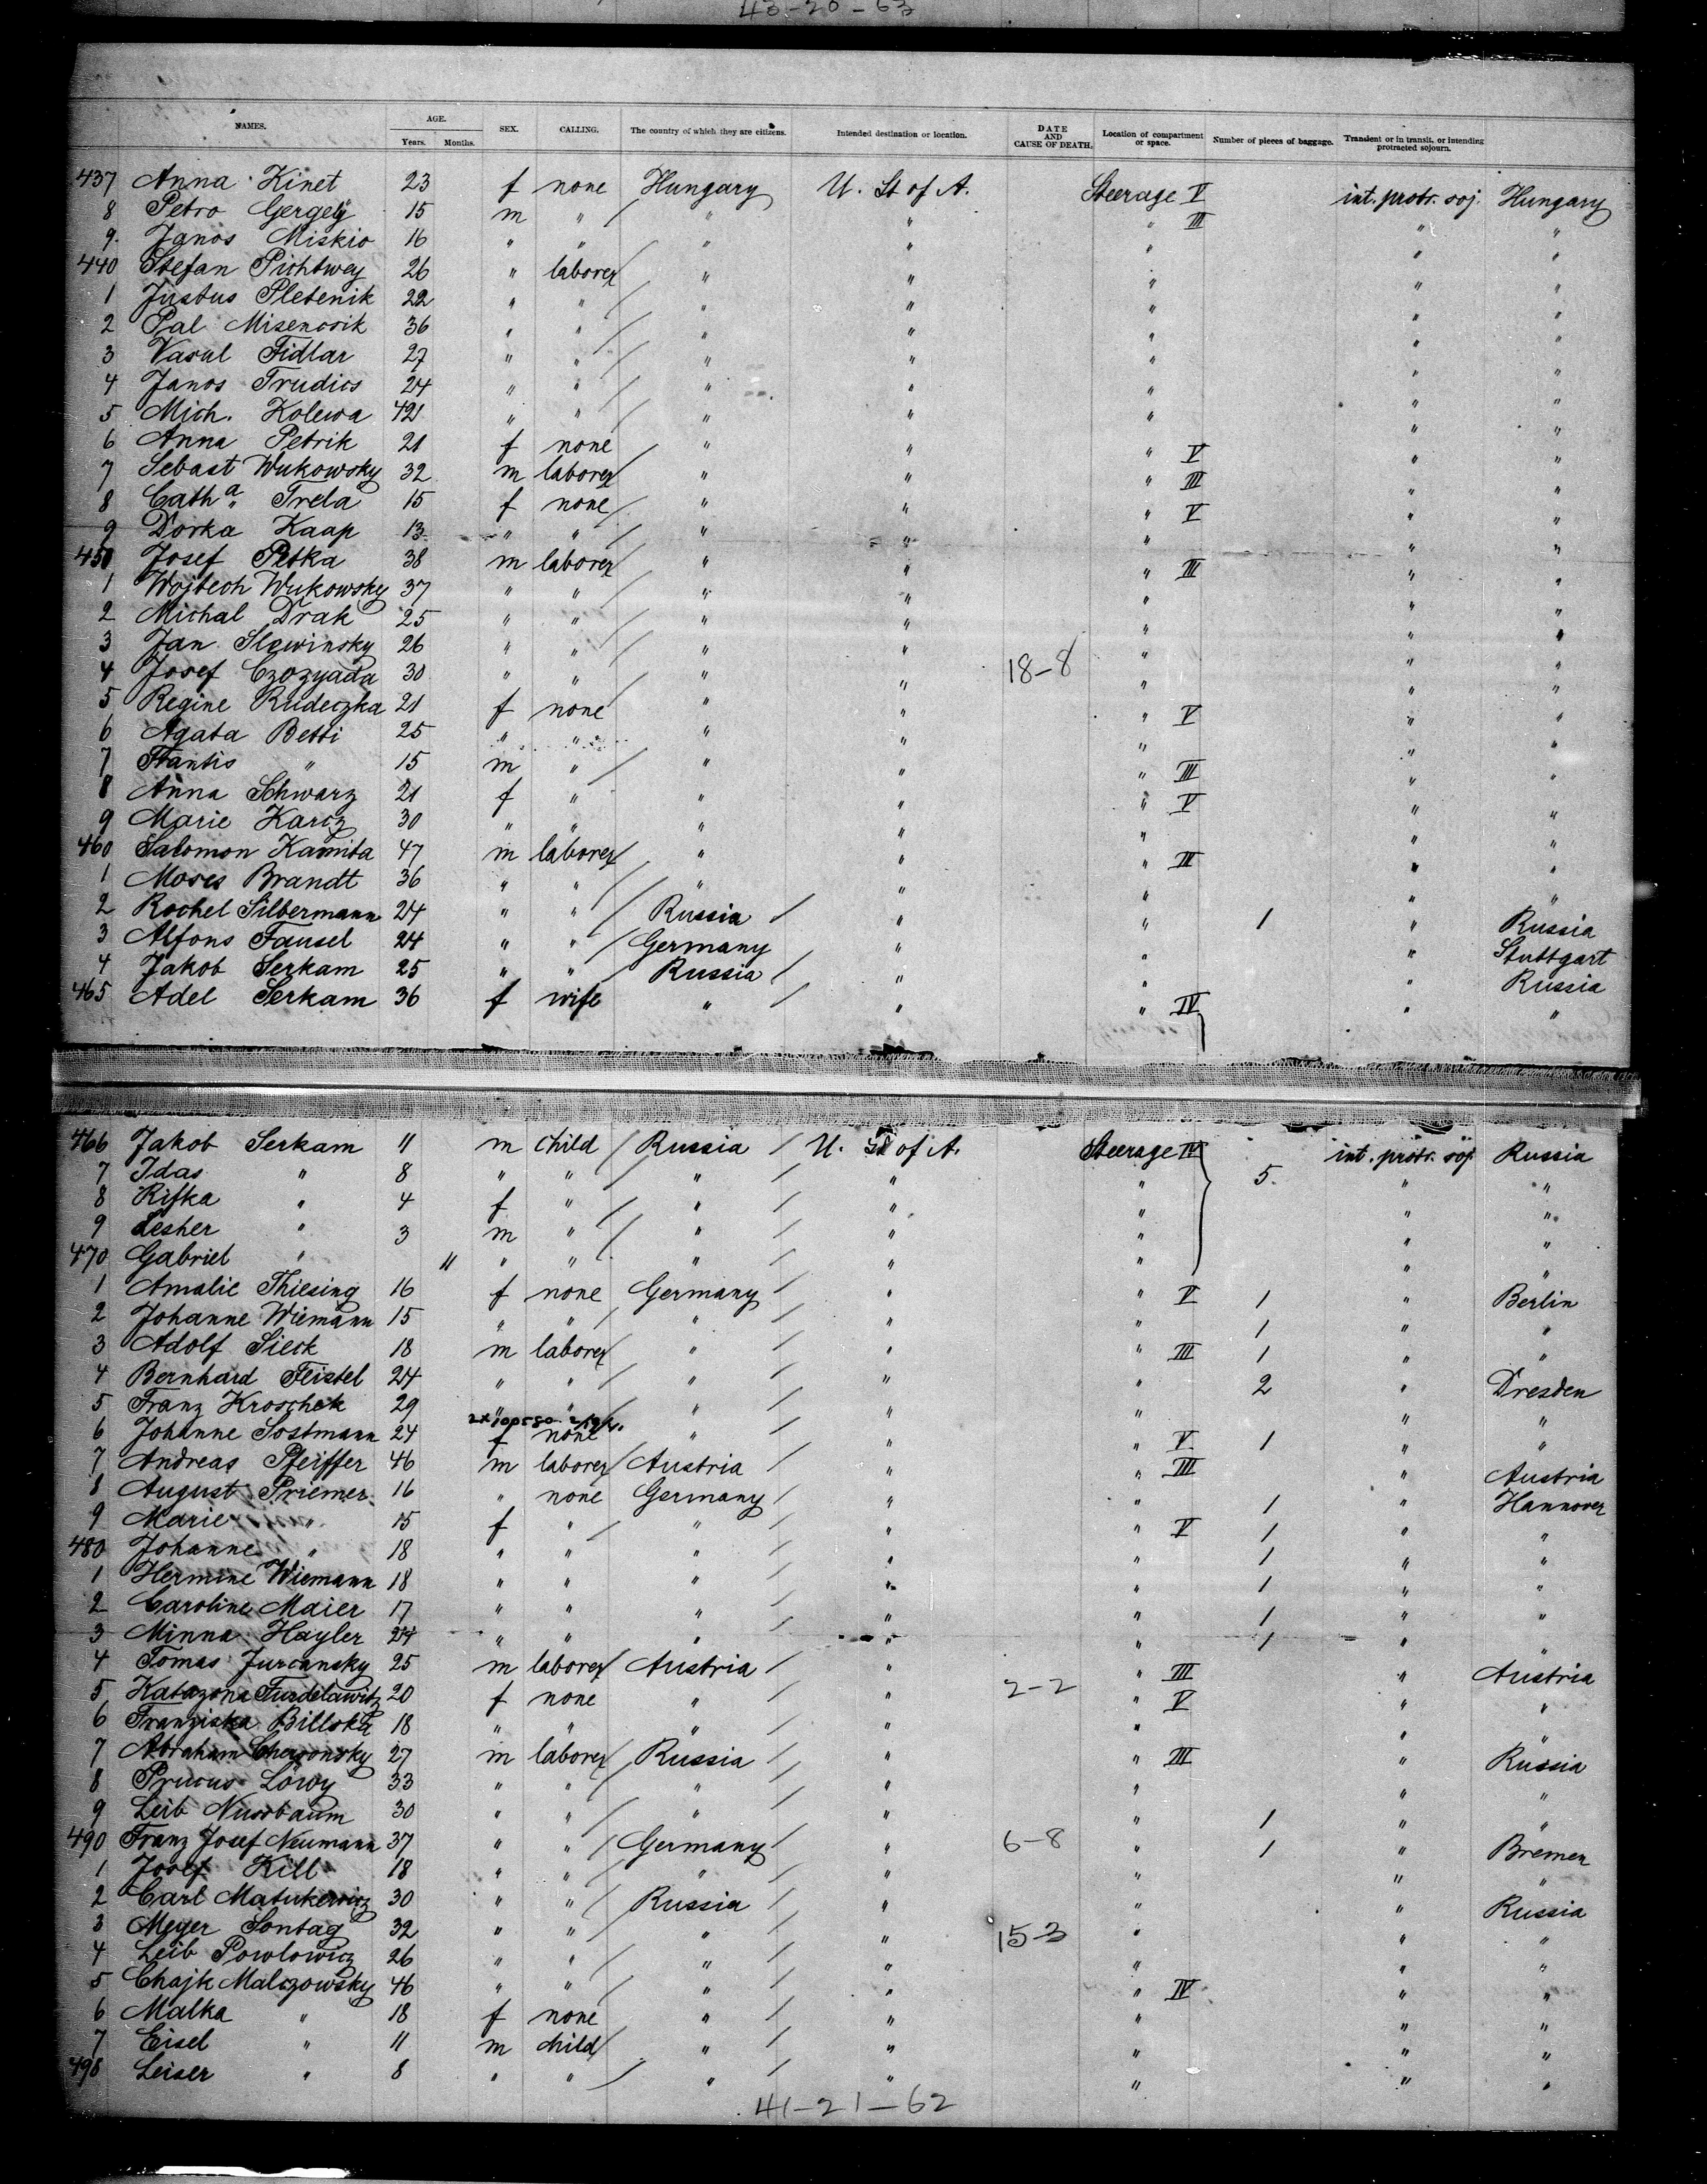 43-20-63
NAMES. AGE. Years. Months. SEX. CALLING. The country of which they are citizens. Intended destination or location. DATE AND CAUSE OF DEATH. Location of compartment or space. Number of pieces of baggage. Transient or in transit, or intending protracted sojourn.
437 Anna Kinet 23 f none Hungary U. St of A. Steerage V int. protr. soj. Hungary
8 Petro Gergely 15 m " / " " " III " "
9. Janos Miskio 16 " " " " " " "
440 Stefan Pichtwey 26 " laborer / " " " " "
1 Justus Pletenik 22 " " / " " " " "
2 Pal Misencsik 36 " " / " " " " "
3 Vasul Fidlar 27 " " / " " " " "
4 Janos Trudics 24 " " / " " " " "
5 Mich. Kolewa 42 " " / " " " " "
6 Anna Petrik 21 f none / " " " V " "
7 Sebast Wukowsky 32 m laborer / " " " III " "
8 Catha Trela 15 f none / " " " V " "
9 Dorka Kaap 13 " " / " " " " "
450 Josef Petka 38 m laborer / " " " III " "
1 Wojtech Wukowsky 37 " " / " " " " "
2 Michal Drak 25 " " / " " " " "
3 Jan Slewinsky 26 " " / " " " " "
4 Josef Czozyada 30 " " / " " 18-8 " " "
5 Regine Rudeczka 21 f none " " " V " "
6 Agata Betti 25 " " " " " " "
7 Frantis " 15 m " / " " " III " "
8 Anna Schwarz 21 f " " " " V " "
9 Marie Karcz 30 " " " " " " "
460 Salomon Kamita 47 m laborer / " " " III " "
1 Moses Brandt 36 " " / " " " " "
2 Rochel Silbermann 24 " " / Russia / " " 1 " Russia
3 Alfons Fausel 24 " " / Germany " " " Stuttgart
4 Jakob Serkam 25 " " Russia / " " " Russia
465 Adel Serkam 36 f wife " / " " IV " "
466 Jakob Serkam 11 m child / Russia / U. St of A. Steerage IV int. protr. soj. Russia
7 Idas " 8 " " / " / " " 5. " "
8 Rifka " 4 f " / " / " " " "
9 Lesher " 3 m " / " / " " " "
470 Gabriel " 11 " " " / " " " "
1 Amalie Thiesing 16 f none Germany / " " V 1 " Berlin
2 Johanne Wiemann 15 " " " / " " 1 " "
3 Adolf Sieck 18 m laborer / " / " " III 1 " "
4 Bernhard Feistel 24 " " / " / " " 2 " Dresden
5 Franz Kroschek 29 " " / " / " " " "
6 Johanne Sostmann 24 f none " / " " V 1 " "
7 Andreas Pfeiffer 46 m laborer / Austria / " " III " Austria
8 August Priemer 16 " none Germany / " " 1 " Hannover
9 Marie " 15 f " / " / " " V 1 " "
480 Johanne " 18 " " " / " " 1 " "
1 Hermine Wiemann 18 " " " / " " 1 " "
2 Caroline Maier 17 " " " / " " 1 " "
3 Minna Hayler 24 " " " / " " 1 " "
4 Tomas Jurcansky 25 m laborer / Austria / " " III " Austria
5 Katazona Turdelawitz 20 f none " / " 2-2 " V " "
6 Franziska Billska 18 " " " / " " " "
7 Abraham Chersonsky 27 m laborer / Russia / " " III " Russia
8 Löwy 33 " " / " / " " " "
9 Leib Nussbaum 30 " " / " / " " 1 " "
490 Franz Josef Neumann 37 " " / Germany / " 6-8 " 1 " Bremen
1 Josef Kill 18 " " / " / " " " "
2 Carl Matukewicz 30 " " / Russia / " " " Russia
3 Meyer Sontag 32 " " / " / " 15-3 " " "
4 Leib Powlowicz 26 " " / " / " " " "
5 Chajk Malczowsky 46 " " / " / " " IV " "
6 Malka " 18 f none " / " " " "
7 Eisel " 11 m child / " / " " " "
498 Leiser " 8 " " / " / " " " "
41-21-62